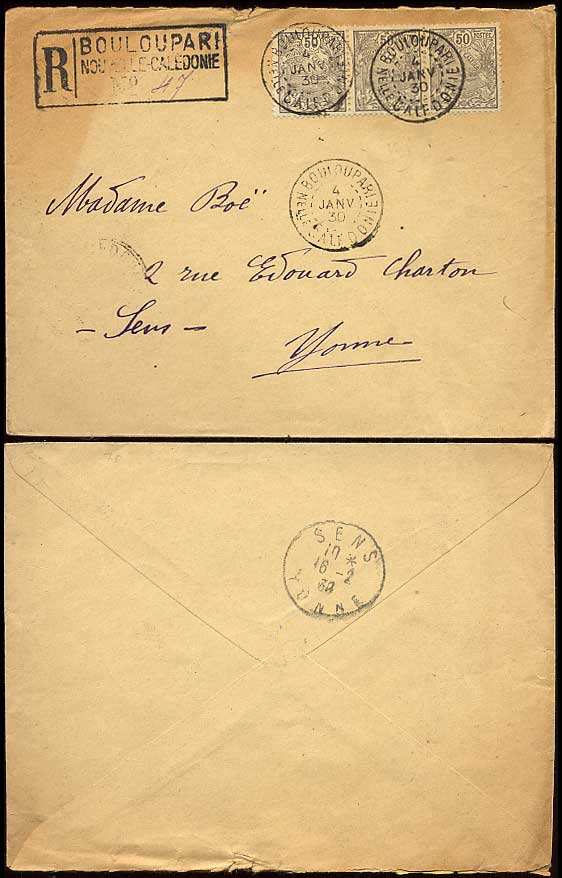 R
BOULOUPARI
NOUVELLE-CALÉDONIE
Nº 47
50
50
50 POSTES
BOULOUPARI
4
JANV
30
Nelle CALEDONIE
BOULOUPARI
4
JANV
30
Nelle CALEDONIE
BOULOUPARI
4
JANV
30
Nelle CALEDONIE
Madame Boë
2 rue Edouard Charton
- Sens -
Yonne
SENS
16 - 2
30
YONNE